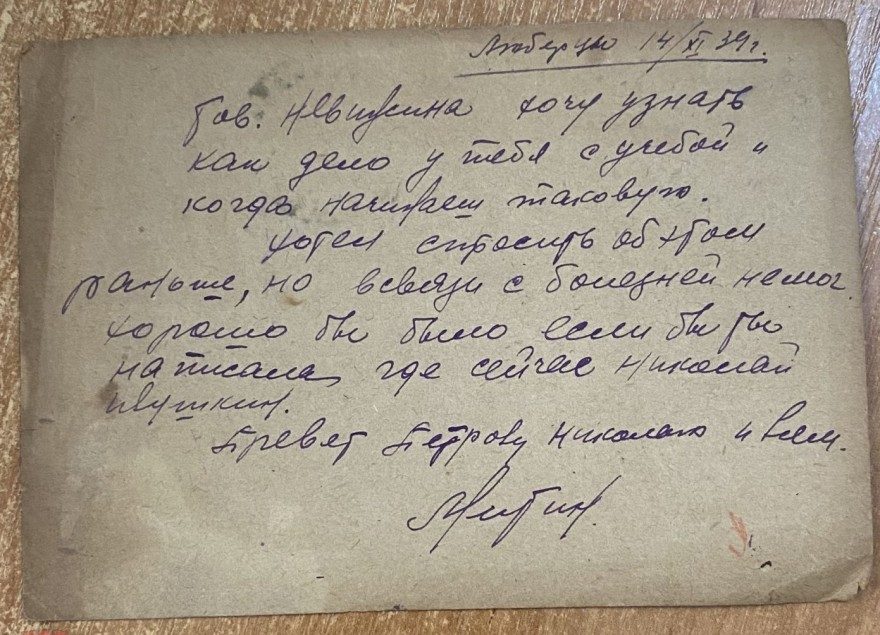 Люберцы 14/XI 39 г.
Тов. хочу узнать
как дело у тебя с учебой и
когда начинаеш таковую.
Хотел спросить об этом
раньше, но всвязи с болезней немог.
Хорошо бы было если бы ты
написала где сейчас Николай
Превет Петрову Николаю и всем.
Митин.